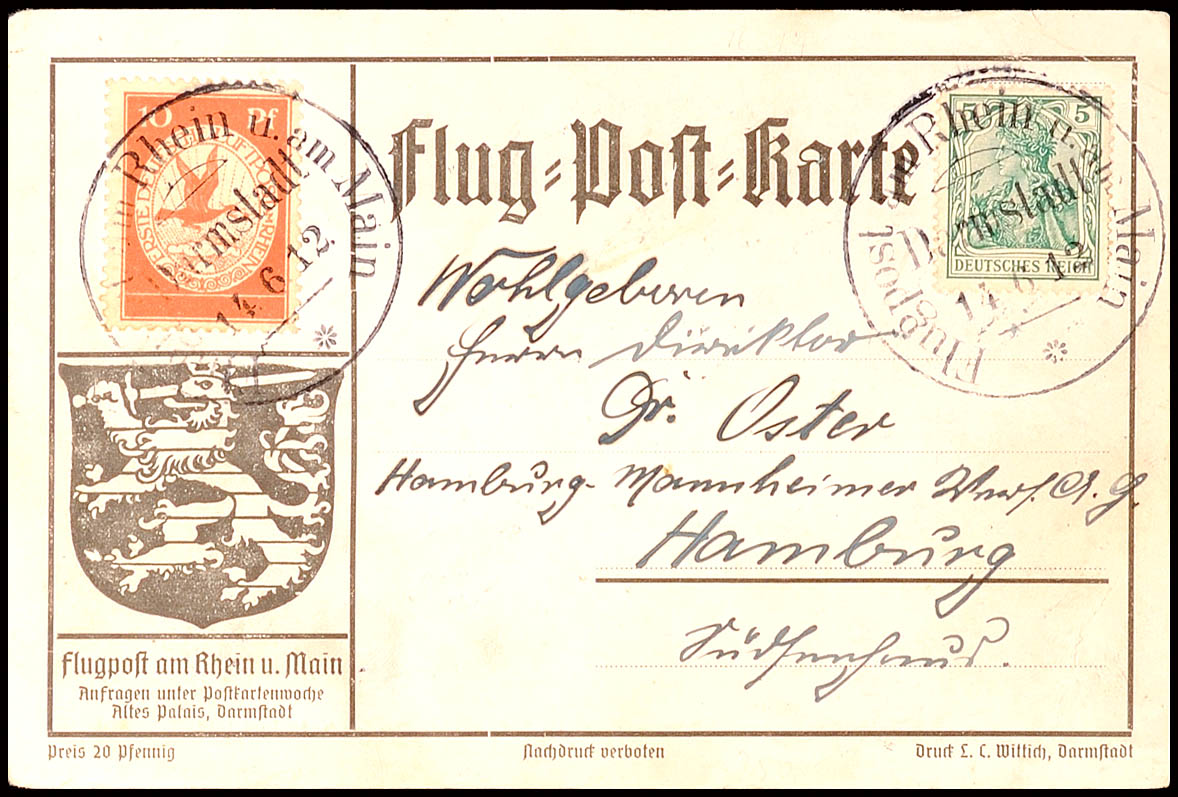 10 Pf
ERSTE DEUTSCHE LUFTPOST AM RHEIN
Flugpost am Rhein u. am Main
Darmstadt
14 6 12
Flug-Post-Karte
5 5
DEUTSCHES REICH
Flugpost am Rhein u. am Main
Darmstadt
14. 6 12
Wohlgeboren
Herrn Direktor
Dr. Oster
Hamburg-Mannheimer Vers. A. G.
Hamburg
Südseehaus.
Flugpost am Rhein u. Main
Anfragen unter Postkartenwoche
Altes Palais, Darmstadt
Preis 20 Pfennig
Nachdruck verboten
Druck L. C. Wittich, Darmstadt